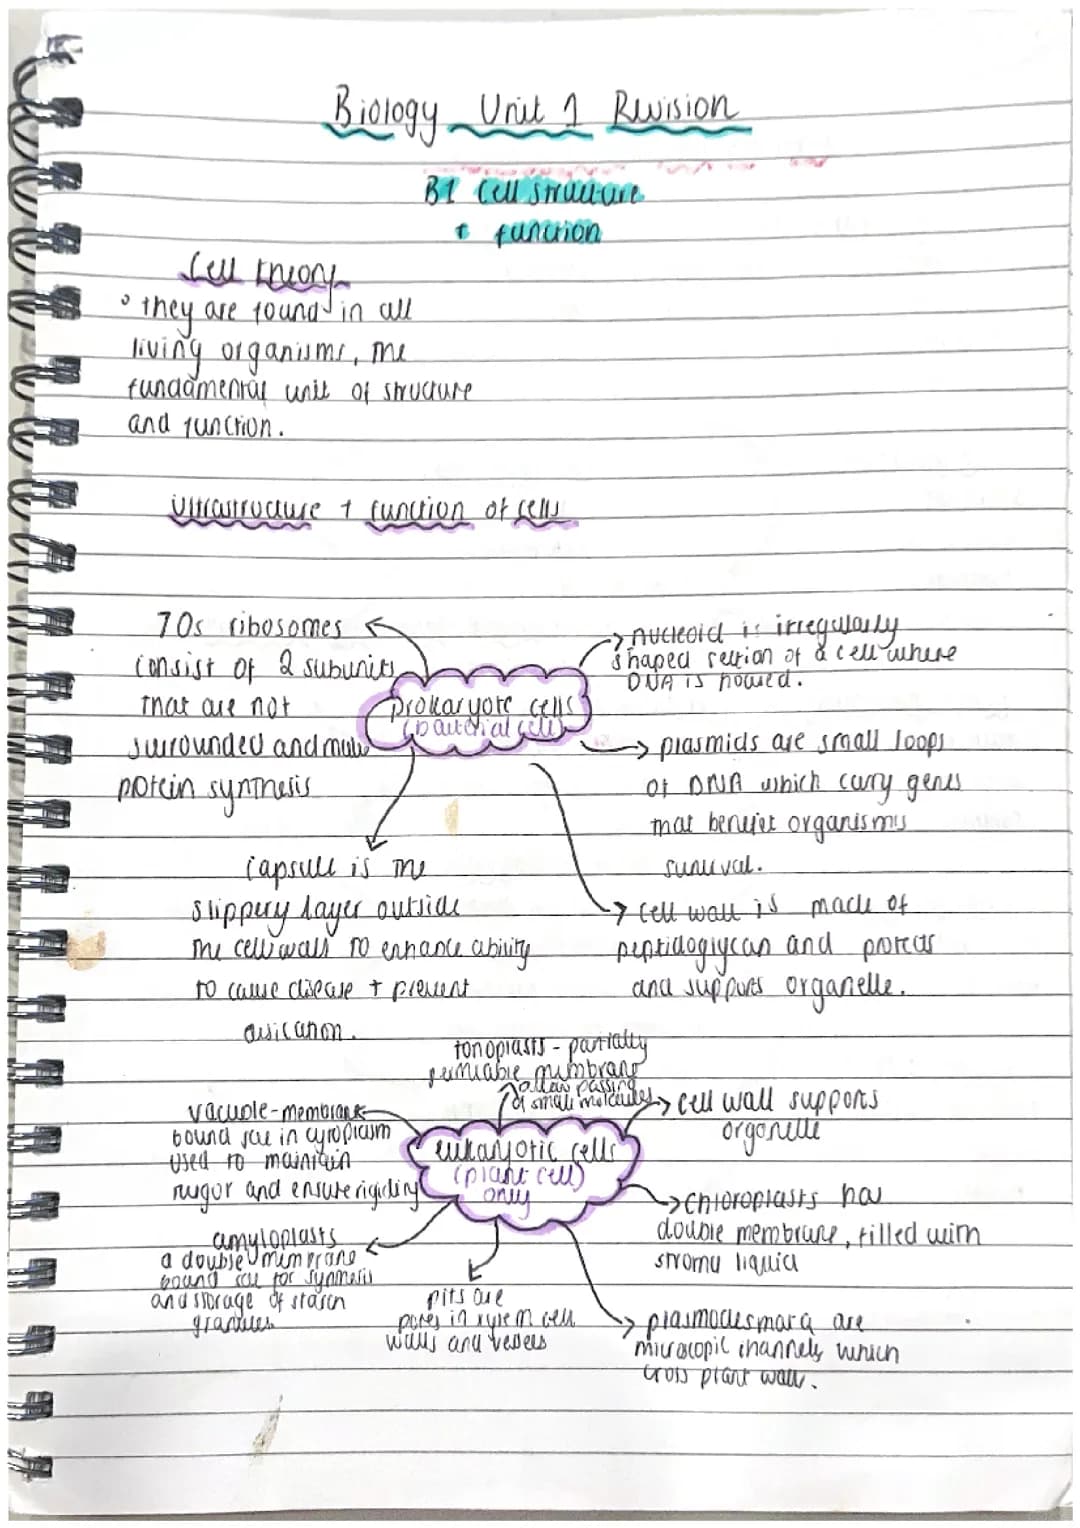 Biology Unit 1 Revision
B1 Cell structure
+ function
Cell theory
° they are found in all
living organisms, the
fundamental unit of structure
and function.
Ultrastructure + function of cells
70s ribosomes
consist of 2 subunits
that are not
surrounded and make
protein synthesis
nucleoid is irregularly
shaped section of a cell where
DNA is housed.
prokaryote cells
(bacterial cell)
plasmids are small loops
of DNA which carry genes
that benefit organisms
survival.
capsule is the
slippery layer outside
the cell walls to enhance ability
to cause disease + prevent
cell wall is made of
peptidoglycan and
and supports organelle.
tonoplasts - partially
permiable membrane
allow passing
of small molecules
vacuole - membrane
bound sac in cytoplasm
used to maintain
turgor and ensure rigidity
cell wall supports
organelle
eukaryotic cells
(plant cell)
only
chloroplasts has
double membrane, filled with
stroma liquid
amyloplasts
a double membrane
bound sac for synthesis
and storage of starch
granules
pits are
pores in xylem cell
walls and vessels
plasmodesmata are
microscopic channels which
cross plant wall.